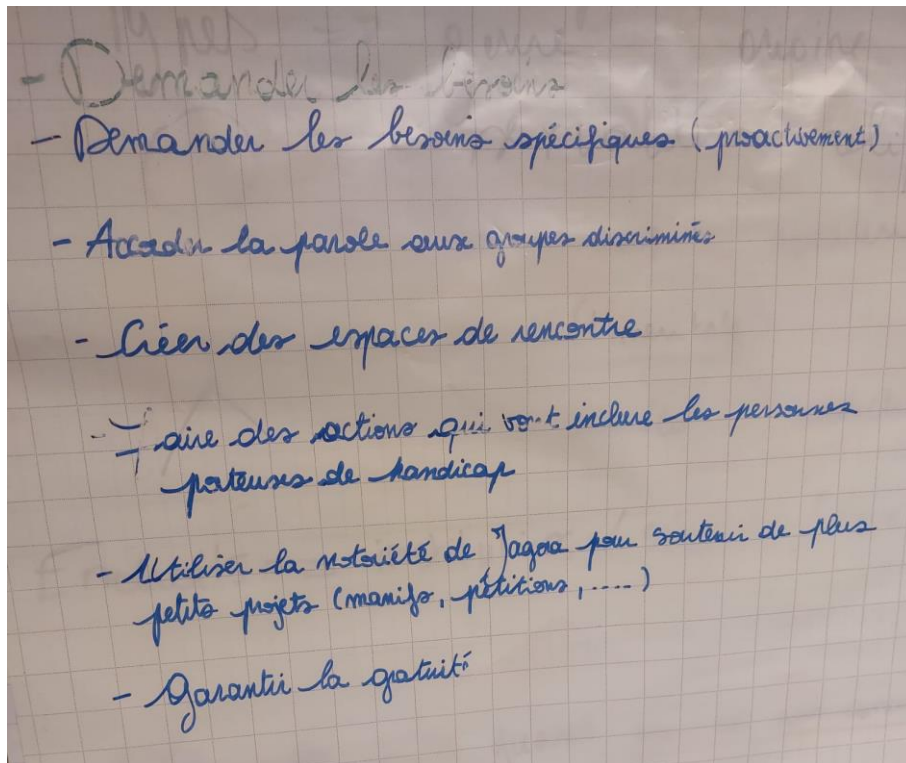 - Demander les besoins
- Demander les besoins spécifiques (proactivement)
- Accorder la parole aux groupes discriminés
- Créer des espaces de rencontre
- Faire des actions qui vont inclure les personnes
porteuses de handicap
- Utiliser la notoriété de Jagora pour soutenir de plus
petits projets (manifs, pétitions, .....)
- Garantir la gratuité